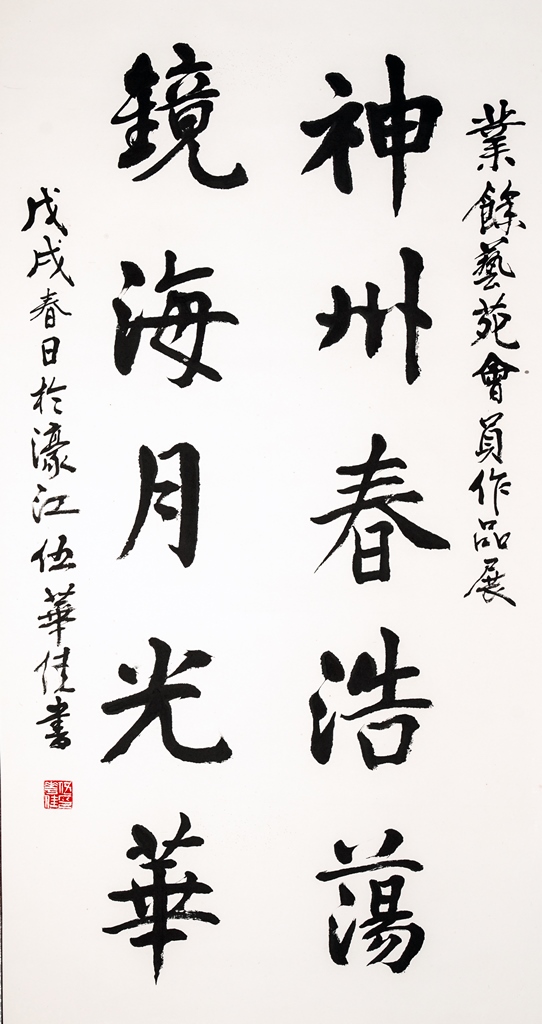 業餘藝苑會員作品展
神州春浩蕩
鏡海月光華
戊戌春日於濠江伍華佳書